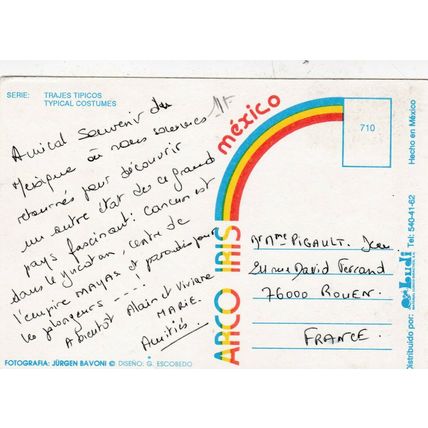 SERIE: TRAJES TIPICOS
TYPICAL COSTUMES
Amical Souvenir du
Mexique où nous sommes
retournés pour découvrir
un autre état de ce grand
pays fascinant: Cancun est
dans le Yucatan, centre de
l'empire MAYAS et paradis pour
les plongeurs ----!
A bientôt Alain et Viviane
MARIE.
Amitiés
FOTOGRAFIA: JÜRGEN BAVONI © DISEÑO: G. ESCOBEDO
ARCO IRIS
méxico
710
Mme PIGAULT. Jean
rue David Ferrand
76000 ROUEN.
FRANCE.
Hecho en México
Tel: 540-41-62
Distribuido por: